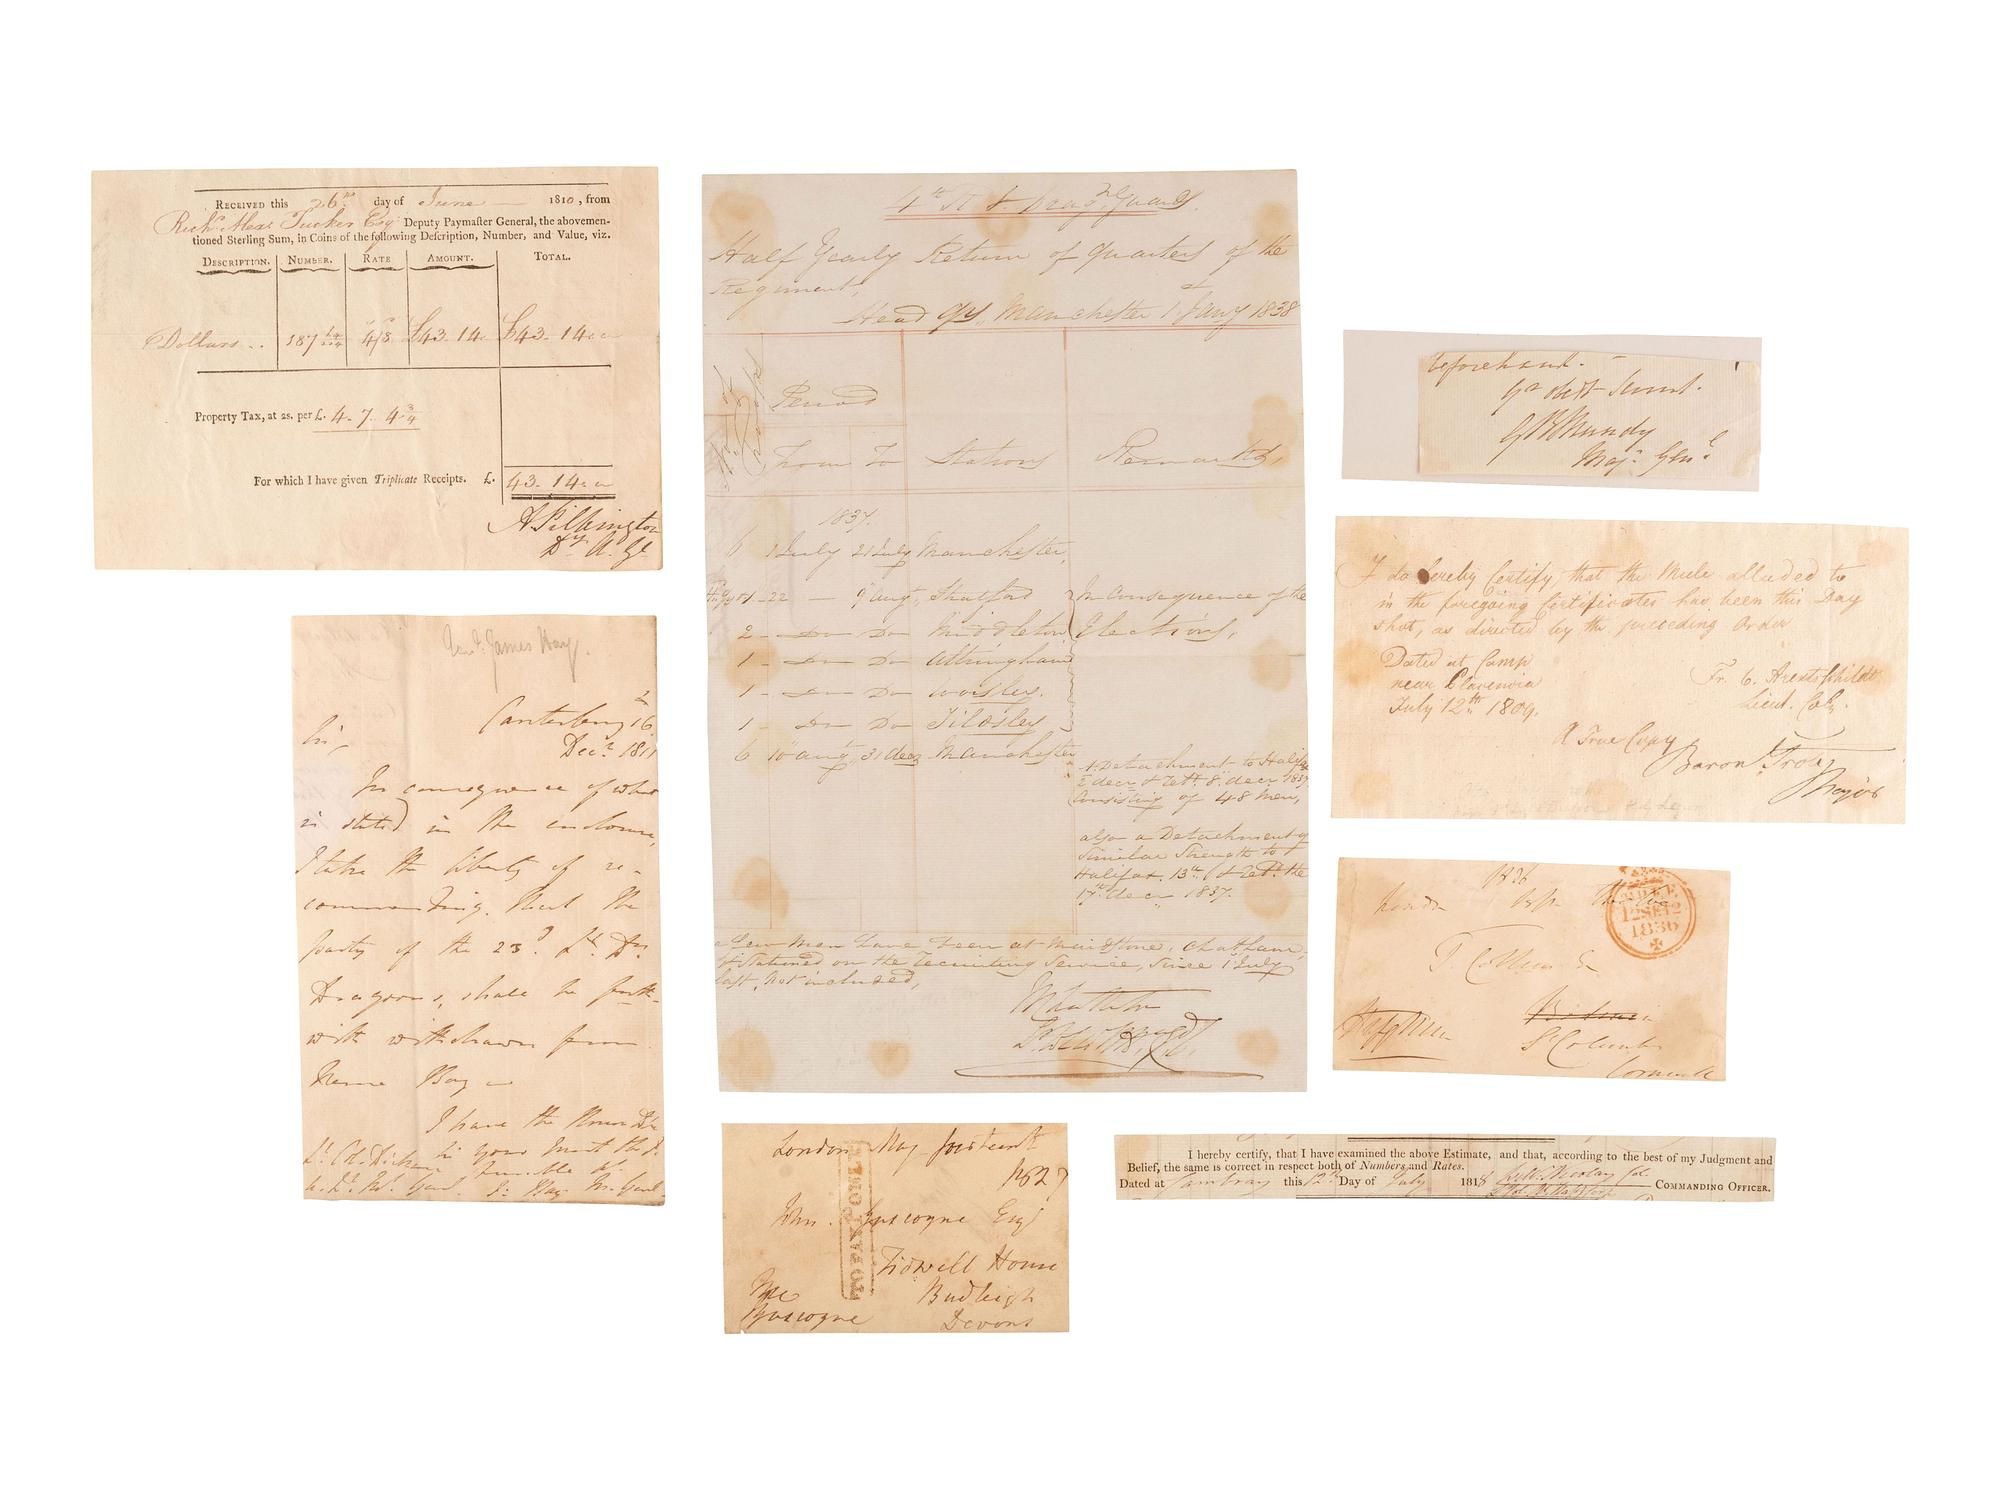 RECEIVED this 26th day of June 1810, from
Richd. Alexr. Tucker Esqr. Deputy Paymaster General, the abovemen-
tioned Sterling Sum, in Coins of the following Description, Number, and Value, viz.
DESCRIPTION. NUMBER. RATE AMOUNT. TOTAL.
Dollars 187 4/8 £43. 14. £43. 14.
Property Tax, at 2s. per £. 4. 7. 4 3/4
For which I have given Triplicate Receipts. £. 43. 14.
A Pilkington
Dy. A. Gl
Genl. James Hay.
Canterbury 16
Decr. 1811
Sir,
In consequence of what
is stated in the enclosure,
I take the liberty of re-
commending, that the
party of the 23d. Lt. Dr.
Dragoons, shall be forth-
with withdrawn from
Herne Bay
I have the Honor
4th Dragn. Guards.
Half Yearly Return of Quarters of the
Regiment,
Head Qrs., Manchester 1st Jany 1838
Period
From To Stations Remarks,
1837.
6 1 July 21 July Manchester,
1 22 — 9 Augt., Stratford In Consequence of the
2 Do Do Middleton Elections,
1 Do Do Altringham
1 Do Do Worsley.
1 Do Do Tildsley
6 10 augt., 31 decr Manchester
A Detachment to Halifax
2 decr & retd. 8 decr 1837.
Consisting of 48 Men,
also a Detachment of
Similar Strength to
Halifax. 13th. & retd. the
17th decr 1837.
a few Men have been at Maidstone, Chatham,
& Stationed on the Recruiting Service, Since 1 July
last, not included,
London May fourteenth
1827
John. Gascoyne Esqr
Tidwell House
Budleigh
Devons
Gascoyne
beforehand.
GB Mundy
Maj. Genl.
I do hereby Certify that the Mule alluded to
in the foregoing Certificates has been this Day
shot, as directed by the preceding Order
Dated at Camp
near Placencia
July 12th 1809.
Fr. C. Arentsschildt
Lieut. Col.
A True Copy
Baron Trotz
Major
1836
12SE12
1836
St Columb
Cornwall
I hereby certify, that I have examined the above Estimate, and that, according to the best of my Judgment and
Belief, the same is correct in respect both of Numbers and Rates.
Dated at Cambray this 12th Day of July 1818 COMMANDING OFFICER.